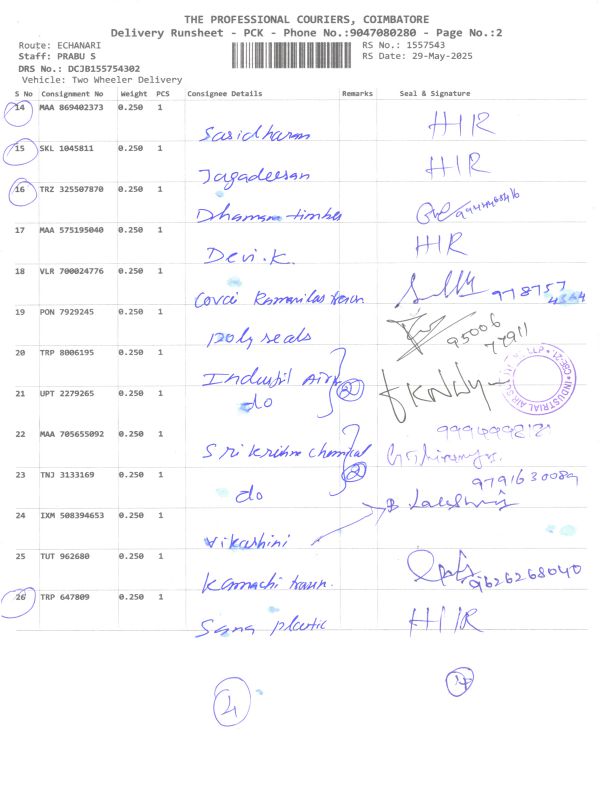 THE PROFESSIONAL COURIERS, COIMBATORE
Delivery Runsheet - PCK - Phone No.:9047080280 - Page No.:2
Route: ECHANARI
RS No.: 1557543
Staff: PRABU S
RS Date: 29-May-2025
DRS No.: DCJB155754302
Vehicle: Two Wheeler Delivery
S No Consignment No Weight PCS Consignee Details Remarks Seal & Signature
14 MAA 869402373 0.250 1
Sasidharan HIR
15 SKL 1045811 0.250 1
Jagadeesan HIR
16 TRZ 325507870 0.250 1
timbes
17 MAA 575195040 0.250 1
Devi.K. HIR
18 VLR 700024776 0.250 1
Covai 978757
19 PON 7929245 0.250 1
poly seals 95006
77911
20 TRP 8006195 0.250 1
21 UPT 2279265 0.250 1
do 2
22 MAA 705655092 0.250 1
Sri Krishna chemical
23 TNJ 3133169 0.250 1
do 2
24 IXM 508394653 0.250 1
Vikashini
25 TUT 962680 0.250 1
9626268040
26 TRP 647809 0.250 1
Sana plastic HIR